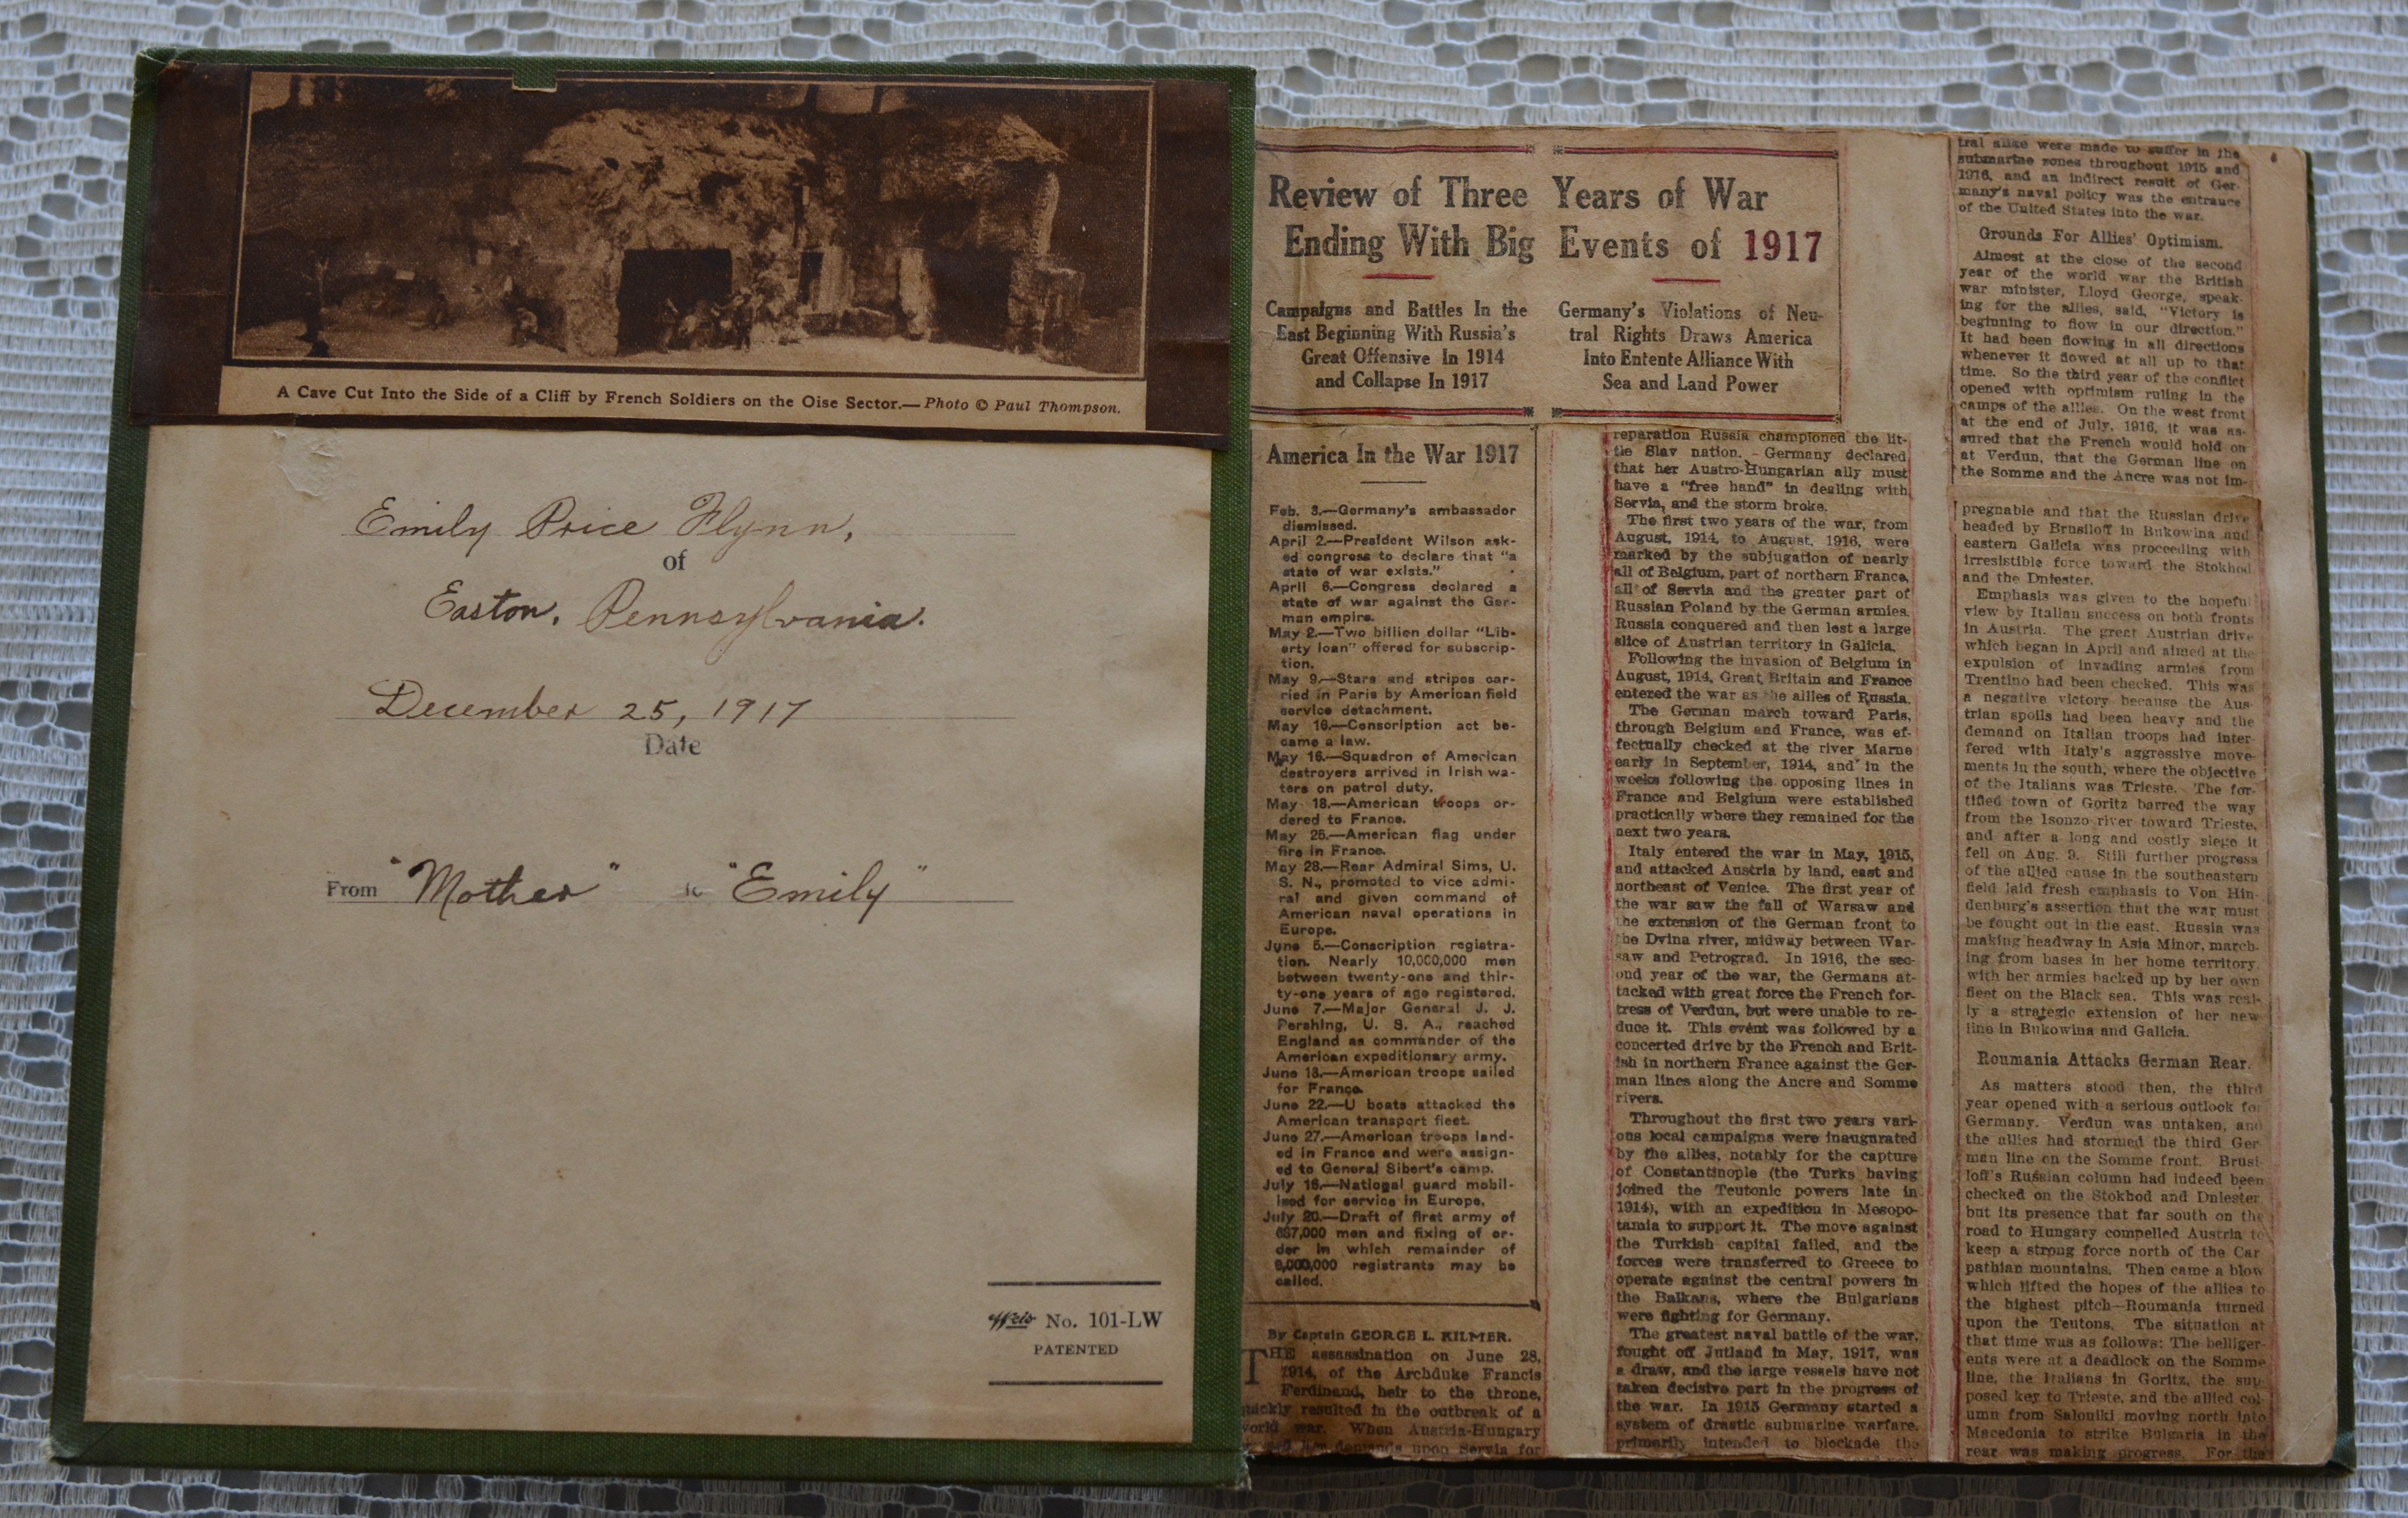 A Cave Cut Into the Side of a Cliff by French Soldiers on the Oise Sector.—Photo © Paul Thompson.
Emily Price Flynn,
of
Easton, Pennsylvania.
December 25, 1917
Date
From "Mother" to "Emily"
No. 101-LW
PATENTED
Review of Three Years of War
Ending With Big Events of 1917
Campaigns and Battles In the
East Beginning With Russia's
Great Offensive In 1914
and Collapse In 1917
Germany's Violations of Neu-
tral Rights Draws America
Into Entente Alliance With
Sea and Land Power
America In the War 1917
Feb. 3.—Germany's ambassador
dismissed.
April 2.—President Wilson ask-
ed congress to declare that "a
state of war exists."
April 6.—Congress declared a
state of war against the Ger-
man empire.
May 2.—Two billion dollar "Lib-
erty loan" offered for subscrip-
tion.
May 9.—Stars and stripes car-
ried in Paris by American field
service detachment.
May 18.—Conscription act be-
came a law.
May 16.—Squadron of American
destroyers arrived in Irish wa-
ters on patrol duty.
May 18.—American troops or-
dered to France.
May 25.—American flag under
fire in France.
May 28.—Rear Admiral Sims, U.
S. N., promoted to vice admi-
ral and given command of
American naval operations in
Europe.
June 5.—Conscription registra-
tion. Nearly 10,000,000 men
between twenty-one and thir-
ty-one years of age registered.
June 7.—Major General J. J.
Pershing, U. S. A., reached
England as commander of the
American expeditionary army.
June 18.—American troops sailed
for France.
June 22.—U boats attacked the
American transport fleet.
June 27.—American troops land-
ed in France and were assign-
ed to General Sibert's camp.
July 16.—National guard mobil-
ized for service in Europe.
July 20.—Draft of first army of
687,000 men and fixing of or-
der in which remainder of
9,000,000 registrants may be
called.
By Captain GEORGE L. KILMER.
THE assassination on June 28,
1914, of the Archduke Francis
Ferdinand, heir to the throne,
quickly resulted in the outbreak of a
world war. When Austria-Hungary
demands upon Servia for
reparation Russia championed the lit-
tle Slav nation. Germany declared
that her Austro-Hungarian ally must
have a "free hand" in dealing with
Servia, and the storm broke.
The first two years of the war, from
August, 1914, to August, 1916, were
marked by the subjugation of nearly
all of Belgium, part of northern France,
all of Servia and the greater part of
Russian Poland by the German armies.
Russia conquered and then lost a large
slice of Austrian territory in Galicia.
Following the invasion of Belgium in
August, 1914, Great Britain and France
entered the war as the allies of Russia.
The German march toward Paris,
through Belgium and France, was ef-
fectually checked at the river Marne
early in September, 1914, and in the
weeks following the opposing lines in
France and Belgium were established
practically where they remained for the
next two years.
Italy entered the war in May, 1915,
and attacked Austria by land, east and
northeast of Venice. The first year of
the war saw the fall of Warsaw and
the extension of the German front to
the Dvina river, midway between War-
saw and Petrograd. In 1916, the sec-
ond year of the war, the Germans at-
tacked with great force the French for-
tress of Verdun, but were unable to re-
duce it. This event was followed by a
concerted drive by the French and Brit-
ish in northern France against the Ger-
man lines along the Ancre and Somme
rivers.
Throughout the first two years vari-
ous local campaigns were inaugurated
by the allies, notably for the capture
of Constantinople (the Turks having
joined the Teutonic powers late in
1914), with an expedition in Mesopo-
tamia to support it. The move against
the Turkish capital failed, and the
forces were transferred to Greece to
operate against the central powers in
the Balkans, where the Bulgarians
were fighting for Germany.
The greatest naval battle of the war,
fought off Jutland in May, 1917, was
a draw, and the large vessels have not
taken decisive part in the progress of
the war. In 1915 Germany started a
system of drastic submarine warfare,
primarily intended to blockade the
tral alike were made to suffer in the
submarine zones throughout 1915 and
1916, and an indirect result of Ger-
many's naval policy was the entrance
of the United States into the war.
Grounds For Allies' Optimism.
Almost at the close of the second
year of the world war the British
war minister, Lloyd George, speak-
ing for the allies, said, "Victory is
beginning to flow in our direction."
It had been flowing in all directions
whenever it flowed at all up to that
time. So the third year of the conflict
opened with optimism ruling in the
camps of the allies. On the west front
at the end of July, 1916, it was as-
sured that the French would hold on
at Verdun, that the German line on
the Somme and the Ancre was not im-
pregnable and that the Russian drive
headed by Brusiloff in Bukowina and
eastern Galicia was proceeding with
irresistible force toward the Stokhod
and the Dniester.
Emphasis was given to the hopeful
view by Italian success on both fronts
in Austria. The great Austrian drive
which began in April and aimed at the
expulsion of invading armies from
Trentino had been checked. This was
a negative victory because the Aus-
trian spoils had been heavy and the
demand on Italian troops had inter-
fered with Italy's aggressive move-
ments in the south, where the objective
of the Italians was Trieste. The for-
tified town of Goritz barred the way
from the Isonzo river toward Trieste,
and after a long and costly siege it
fell on Aug. 9. Still further progress
of the allied cause in the southeastern
field laid fresh emphasis to Von Hin-
denburg's assertion that the war must
be fought out in the east. Russia was
making headway in Asia Minor, march-
ing from bases in her home territory,
with her armies backed up by her own
fleet on the Black sea. This was real-
ly a strategic extension of her new
line in Bukowina and Galicia.
Roumania Attacks German Rear.
As matters stood then, the third
year opened with a serious outlook for
Germany. Verdun was untaken, and
the allies had stormed the third Ger-
man line on the Somme front. Brusi-
loff's Russian column had indeed been
checked on the Stokhod and Dniester,
but its presence that far south on the
road to Hungary compelled Austria to
keep a strong force north of the Car-
pathian mountains. Then came a blow
which lifted the hopes of the allies to
the highest pitch—Roumania turned
upon the Teutons. The situation at
that time was as follows: The belliger-
ents were at a deadlock on the Somme
line, the Italians in Goritz, the sup-
posed key to Trieste, and the allied col-
umn from Saloniki moving north into
Macedonia to strike Bulgaria in the
rear was making progress. For the